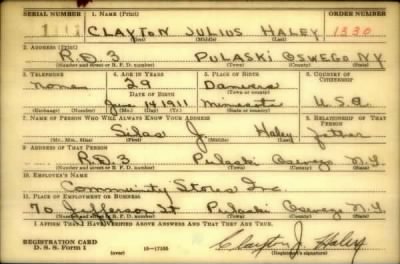 SERIAL NUMBER 1. NAME (Print) ORDER NUMBER
CLAYTON JULIUS HALEY 1330
(First) (Middle) (Last)
2. ADDRESS (Print)
R.D.3 PULASKI OSWEGO N.Y.
(Number and street or R. F. D. number) (Town) (County) (State)
3. TELEPHONE 4. AGE IN YEARS 5. PLACE OF BIRTH 6. COUNTRY OF CITIZENSHIP
None 29 Danvers
DATE OF BIRTH (Town or county)
June 14 1911 Minnesota U.S.A.
(Exchange) (Number) (Mo.) (Day) (Yr.) (State or country)
7. NAME OF PERSON WHO WILL ALWAYS KNOW YOUR ADDRESS 8. RELATIONSHIP OF THAT PERSON
Silas J. Haley father
(Mr., Mrs., Miss) (First) (Middle) (Last)
9. ADDRESS OF THAT PERSON
R.D.3 Pulaski Oswego N.Y.
(Number and street or R. F. D. number) (Town) (County) (State)
10. EMPLOYER'S NAME
Community Stores Inc.
11. PLACE OF EMPLOYMENT OR BUSINESS
70 Jefferson St Pulaski Oswego N.Y.
(Number and street or R. F. D. number) (Town) (County) (State)
I AFFIRM THAT I HAVE VERIFIED ABOVE ANSWERS AND THAT THEY ARE TRUE.
REGISTRATION CARD
D. S. S. Form 1 (over) 16—17105 Clayton J. Haley
(Registrant's signature)